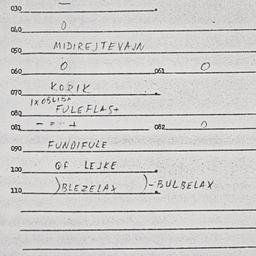 030
040 0
050 MIDIREJTEVAJN
060 0 061 0
070 KOPIK
080 FULEFLAS+
081 082 0
090 FUNDIFULE
100 QF LEJKE
110 )BLEZELAX )-BULBELAX